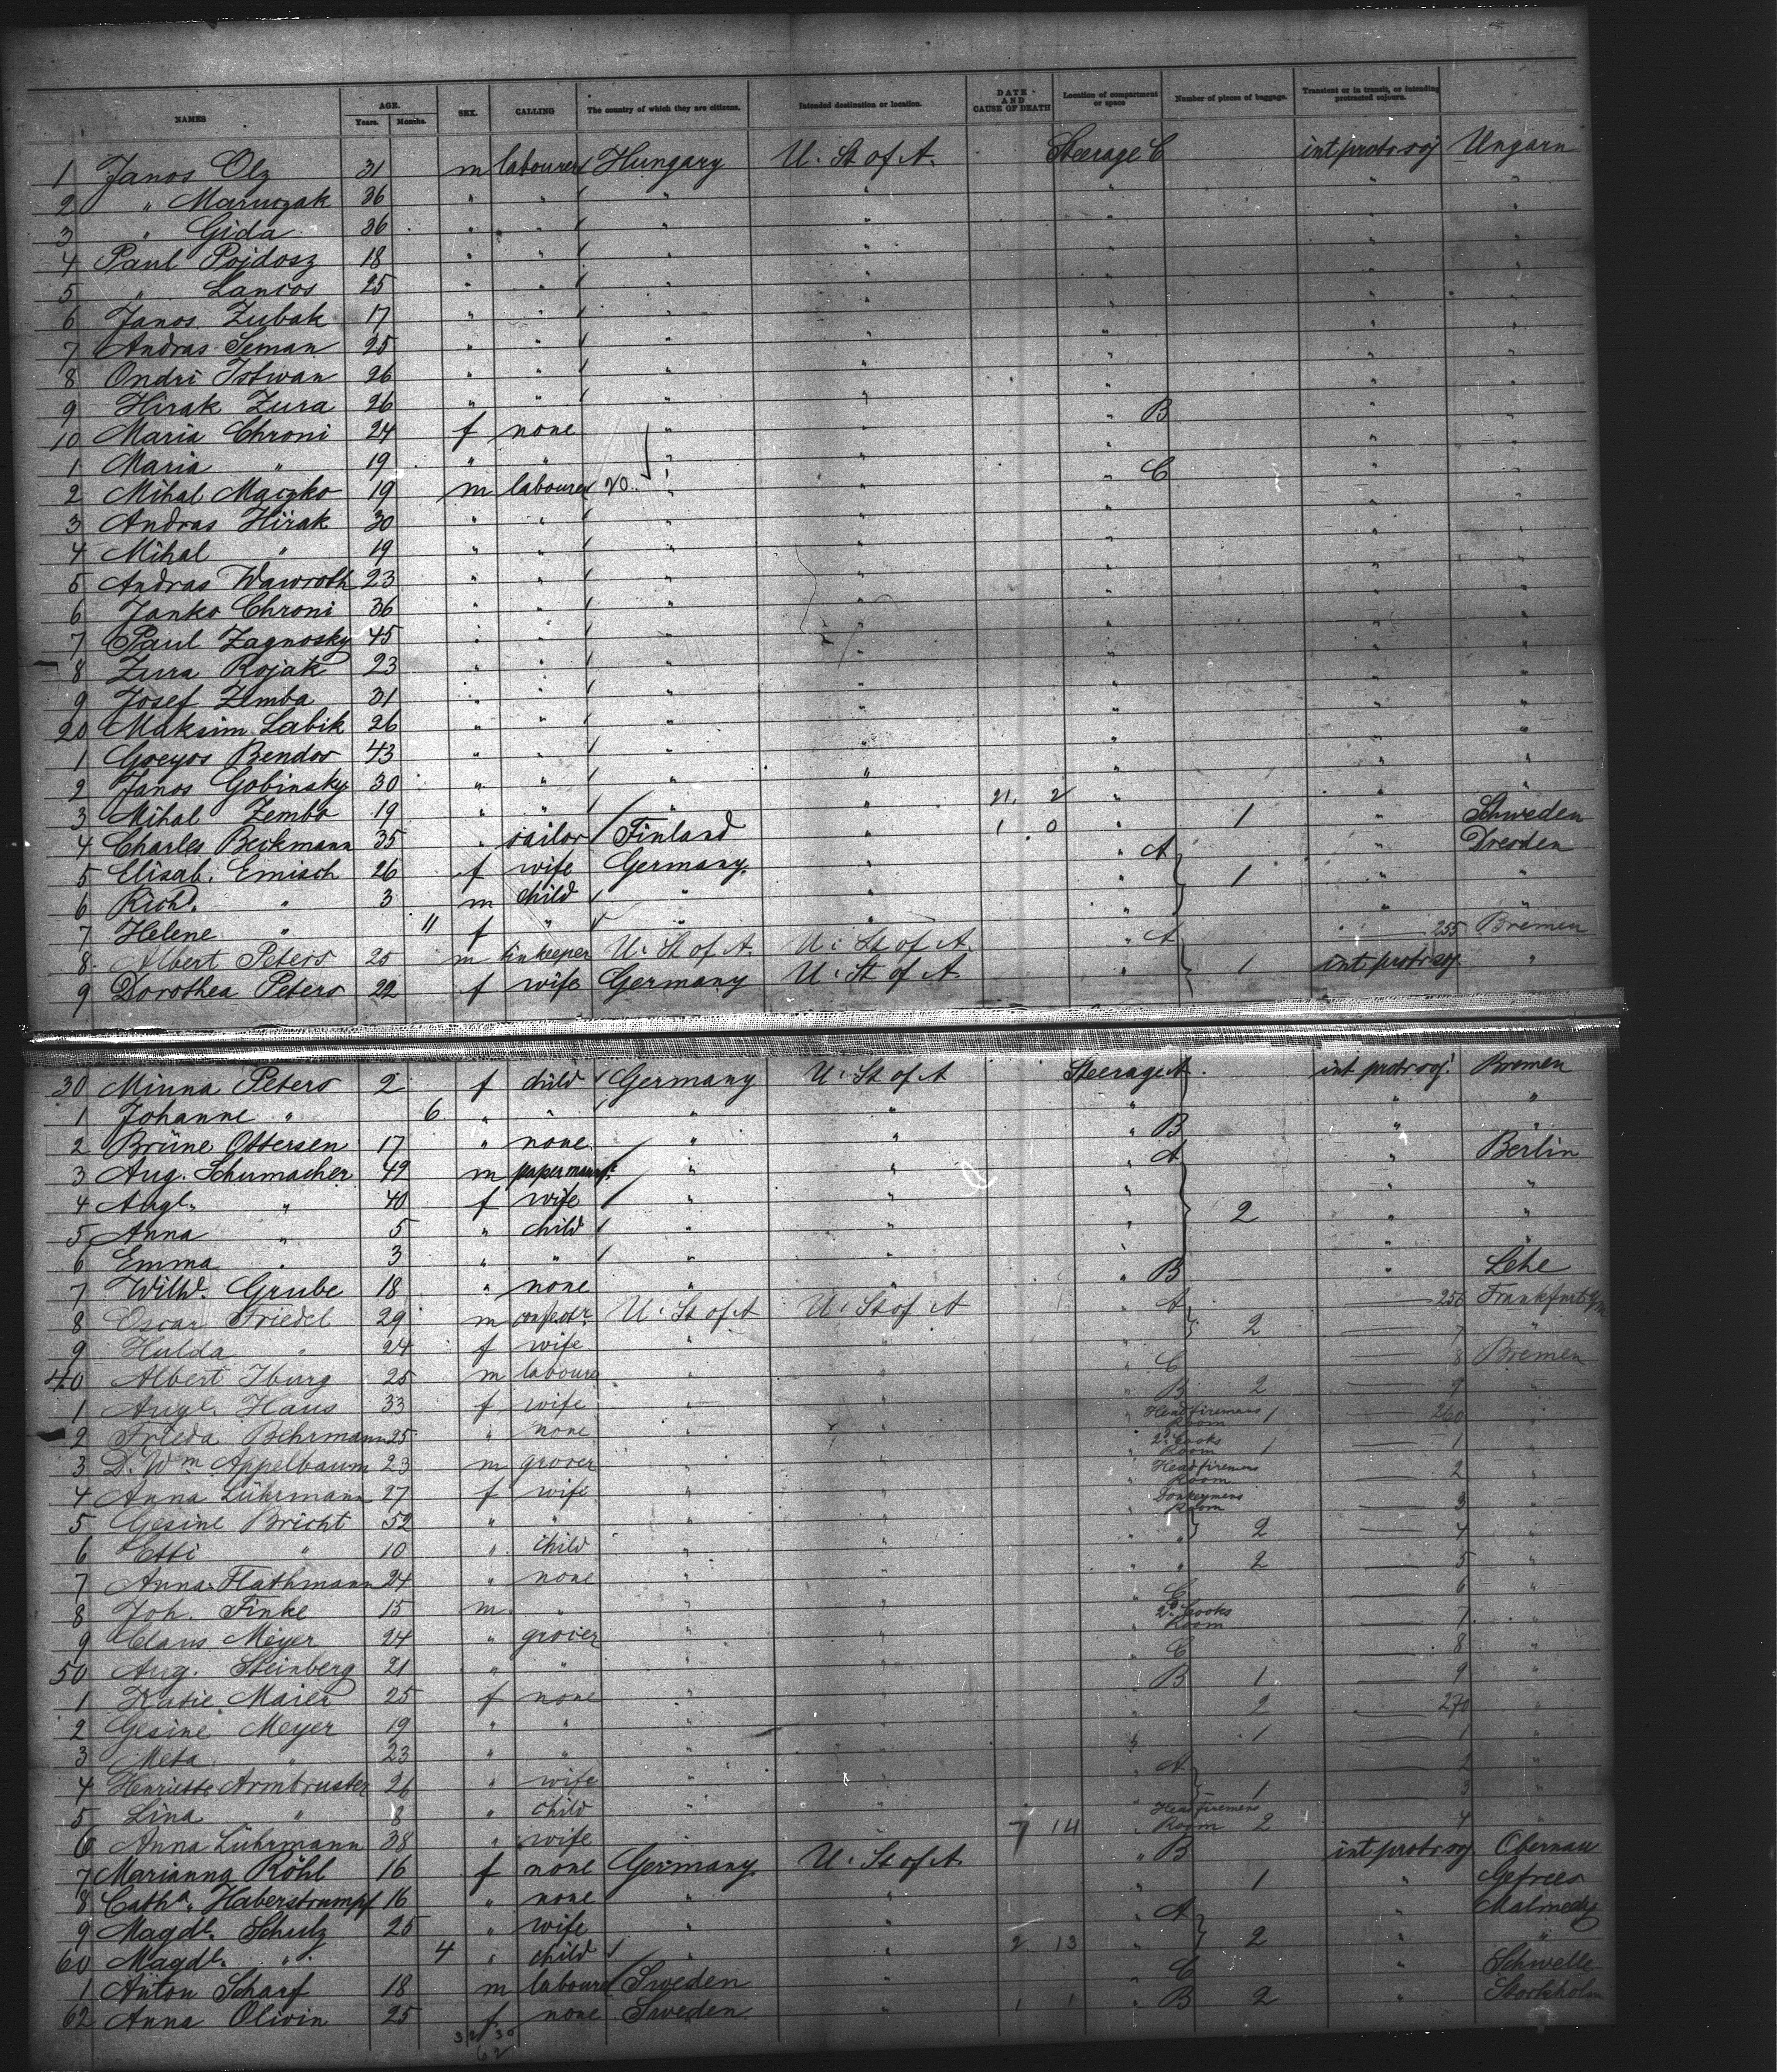 NAMES AGE. Years. Months. SEX. CALLING The country of which they are citizens. Intended destination or location. DATE AND CAUSE OF DEATH Location of compartment or space Number of pieces of baggage. Transient or in transit, or intending protracted sojourn.
1 Janos Olz 31 m labourer Hungary U. St of A. Steerage C int. protr. soj Ungarn
2 " Maruszak 36 " " " " " " "
3 " Gida 36 " " " " " " "
4 Paul Pojdosz 18 " " " " " " "
5 " Lancos 25 " " " " " " "
6 Janos Zubak 17 " " " " " " "
7 Andras Seman 25 " " " " " " "
8 Ondri Istwan 26 " " " " " " "
9 Hirak Zura 26 " " " " " " "
10 Maria Chroni 24 f none " " " B " "
1 Maria " 19 " " " " " " "
2 Mihal Maczko 19 m labourer 20 " " " C " "
3 Andras Hirak 30 " " " " " " "
4 Mihal " 19 " " " " " " "
5 Andras Wawroth 23 " " " " " " "
6 Janko Chroni 36 " " " " " " "
7 Paul Zagnosky 45 " " " " " " "
8 Zura Rojak 23 " " " " " " "
9 Josef Zemba 31 " " " " " " "
20 Maksim Labik 26 " " " " " " "
1 Goeyos Bendos 43 " " " " " " "
2 Janos Gobinsky 30 " " " " " " "
3 Mihal Zemba 19 " " " " 21. 2 " " "
4 Charles Beckmann 35 " sailor Finland " 1 0 " 1 " Schweden
5 Elisab. Emisch 26 f wife Germany " " A " Dresden
6 Richd. " 3 m child " " " 1 " "
7 Helene " 11 f " " " " " "
8 Albert Peters 25 m U. St of A. U. St of A. " A 255 Bremen
9 Dorothea Peters 22 f wife Germany U. St of A. " 1 int protr soj. "
30 Minna Peters 2 f child Germany U. St of A Steerage A int protr soj. Bremen
1 Johanne " 6 " " " " " " "
2 Brüne Ottersen 17 " none " " " B " "
3 Aug. Schumacher 42 m paper manuf. " " " A " Berlin
4 Augt. " 40 f wife " " " " "
5 Anna " 5 " child " " " 2 " "
6 Emma " 3 " " " " " " "
7 Wilhe. Grube 18 " none " " " B " Lehe
8 Oscar Friedel 29 m confectr. U. St of A U. St of A " A 256 Frankfurt a/M
9 Hulda " 24 f wife " " " 2 7 "
40 Albert Iburg 25 m labourer " " " C 8 Bremen
1 Augt. Haus 33 f wife " " " B 2 9 "
2 Frieda Behrmann 25 " none " " " Headfiremans Room 1 260 "
3 D. Wm Appelbaum 23 m grocer " " " 2d. Cooks Room 1 1 "
4 Anna Lührmann 27 f wife " " " Headfiremens Room 2 "
5 Gesine Bricht 52 " " " " " Donkeymens Room 3 "
6 Etti " 10 " child " " " " 2 4 "
7 Anna Flathmann 24 " none " " " " 2 5 "
8 Joh. Finke 15 m " " " " C 6 "
9 Claus Meyer 24 " grocer " " " 2d. Cooks Room 7 "
50 Aug. Steinberg 21 " " " " " C 8 "
1 Katie Maier 25 f none " " " B 1 9 "
2 Gesine Meyer 19 " " " " " 2 270 "
3 Meta " 23 " " " " " 1 1 "
4 Henriette Armbruster 26 " wife " " " A 2 "
5 Lina " 8 " child " " " 1 3 "
6 Anna Lührmann 38 " wife " " 7 14 " Headfiremens Room 2 4 "
7 Marianna Röhl 16 f none Germany U. St of A " B int protr soj. Obernau
8 Catha. Haberstrumpf 16 " none " " " 1 " Gefrees
9 Magdl. Schulz 25 " wife " " " A " Malmedy
60 Magdl. " 4 " child " " 2 13 " 2 " "
1 Anton Scharf 18 m labourer Sweden " " C " Schwelle
62 Anna Olivin 25 f none Sweden " 1 1 " B 2 " Stockholm
32 30
62